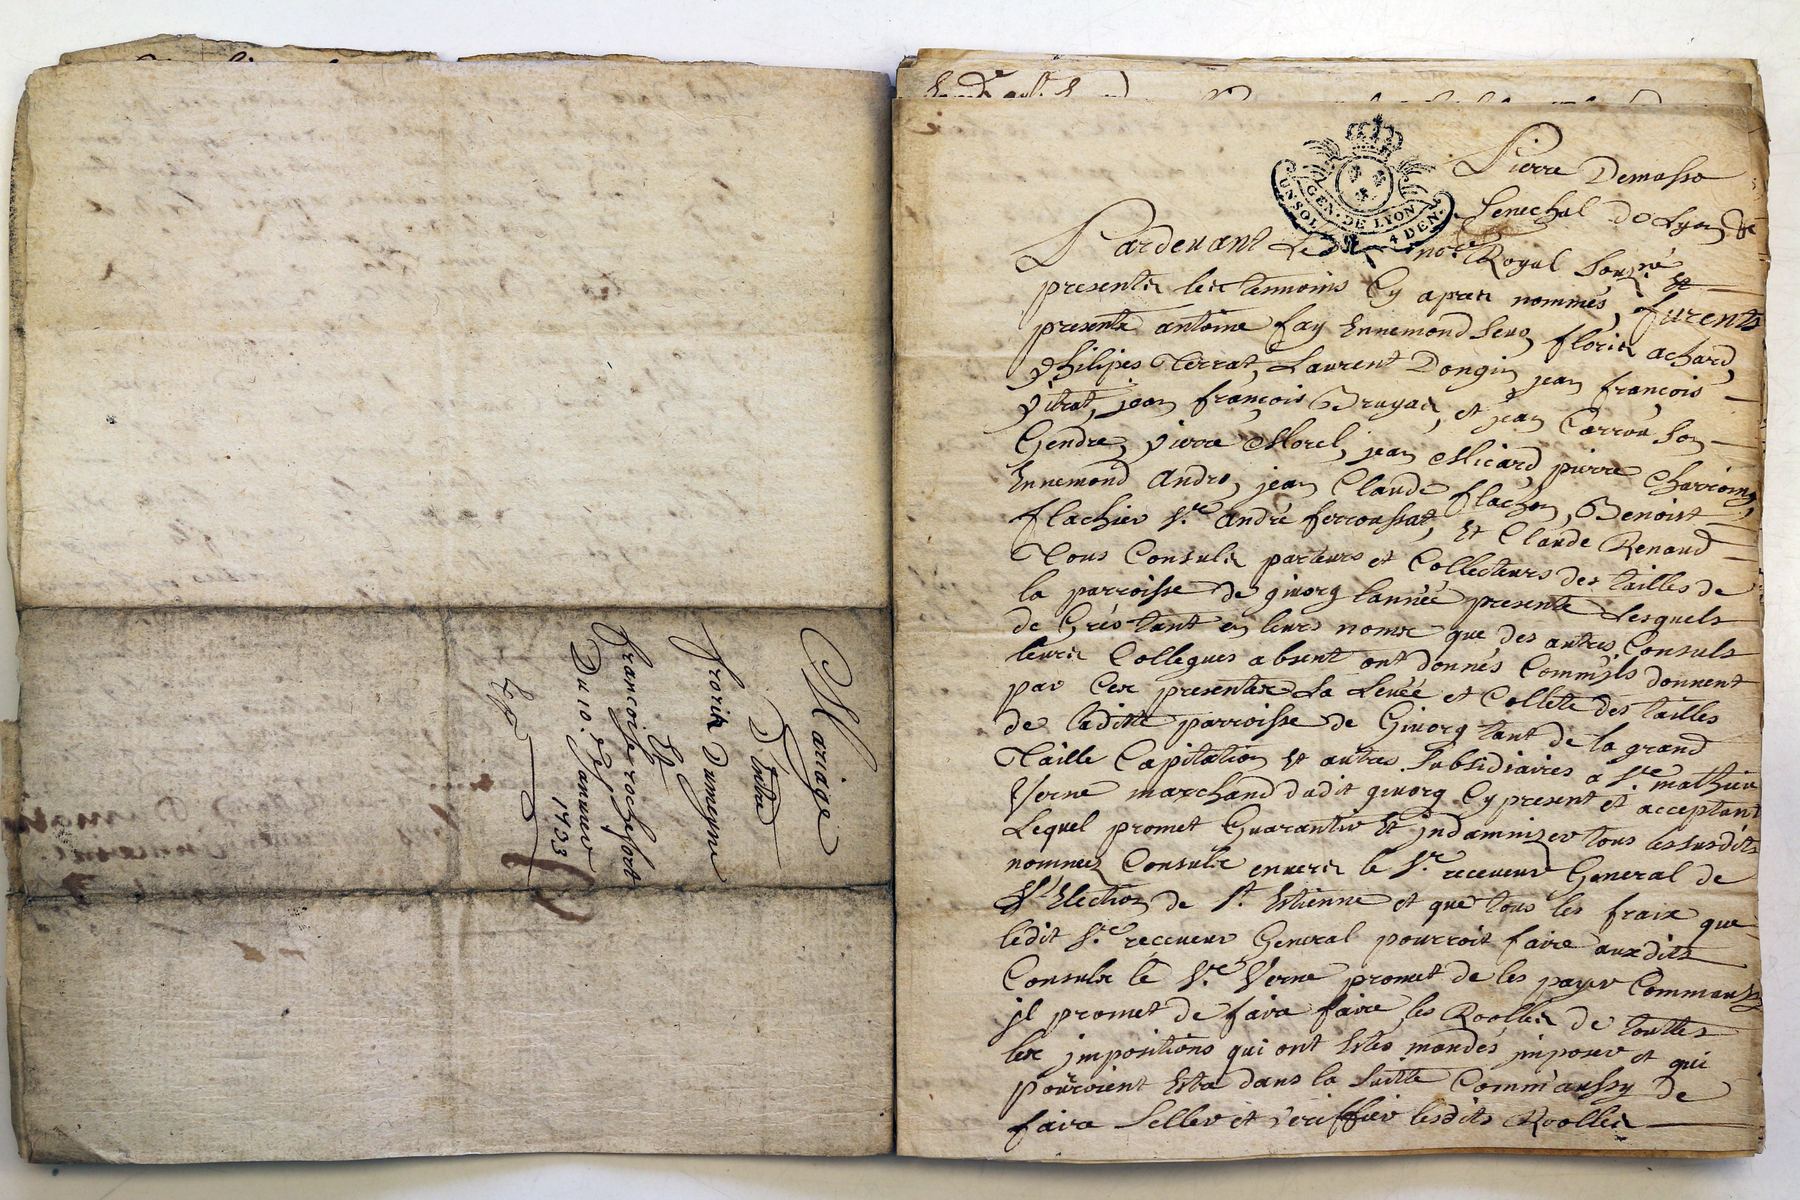 Mariage
Dentre
frorix Dumayne
Et
francoise rochefort
Du 10.e Janvier
1733
GEN. DE LYON
UN SOL 4 DEN.
Pierre Demasso
Senechal De Lyon &c
Pardevant Le nore Royal Sousné et
presents les temoins Cy apres nommés, furents
presents antoine fay Ennemond floris achard,
philipes Terrat, Laurent Dongin jean françois
pitrat, jean françois Bruyas, et jean Carrou son
Gendre, pierre Morel, jean Micard, pierre
Ennemond Andro, jean Claude flachon, Benoist
flachier Sr. andré ferroussat, Et Claude Renaud
Tous Consuls parteurs et Collecteurs des tailles de
la parroisse de givorg lannée presente Lesquels
de Grés tant en leurs noms que des autres Consuls
leurs Collegues absent ont donnés Commils donnent
par Ces presentes La Levée et Collete des tailles
de laditte parroisse de Givorg tant de la grand
Taille Capitation et autres Subsidiaires a Sre mathieu
Verne marchand dudit givorg Cy present et acceptant
Lequel promet Guarantir Et jndamniser tous les susdits
nommes Consuls envers le Sr. receveur General de
l'Election de St. Etienne et que tous les fraix que
ledit Sr. receveur General pourroit faire auxdits
Consuls le Sr. Verne promet de les payer Comm'aussy
jl promet de faire faire les Roolles de touttes
les jmpositions qui ont Estes mandés jmposer et qui
pourroient Estre dans la Suitte Comm'aussy de
faire Seller et veriffier lesdits Roolles